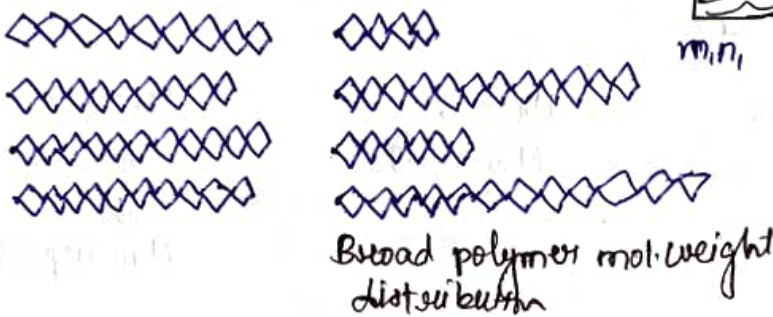 m₁n₁
Broad polymer mol. weight
distribution